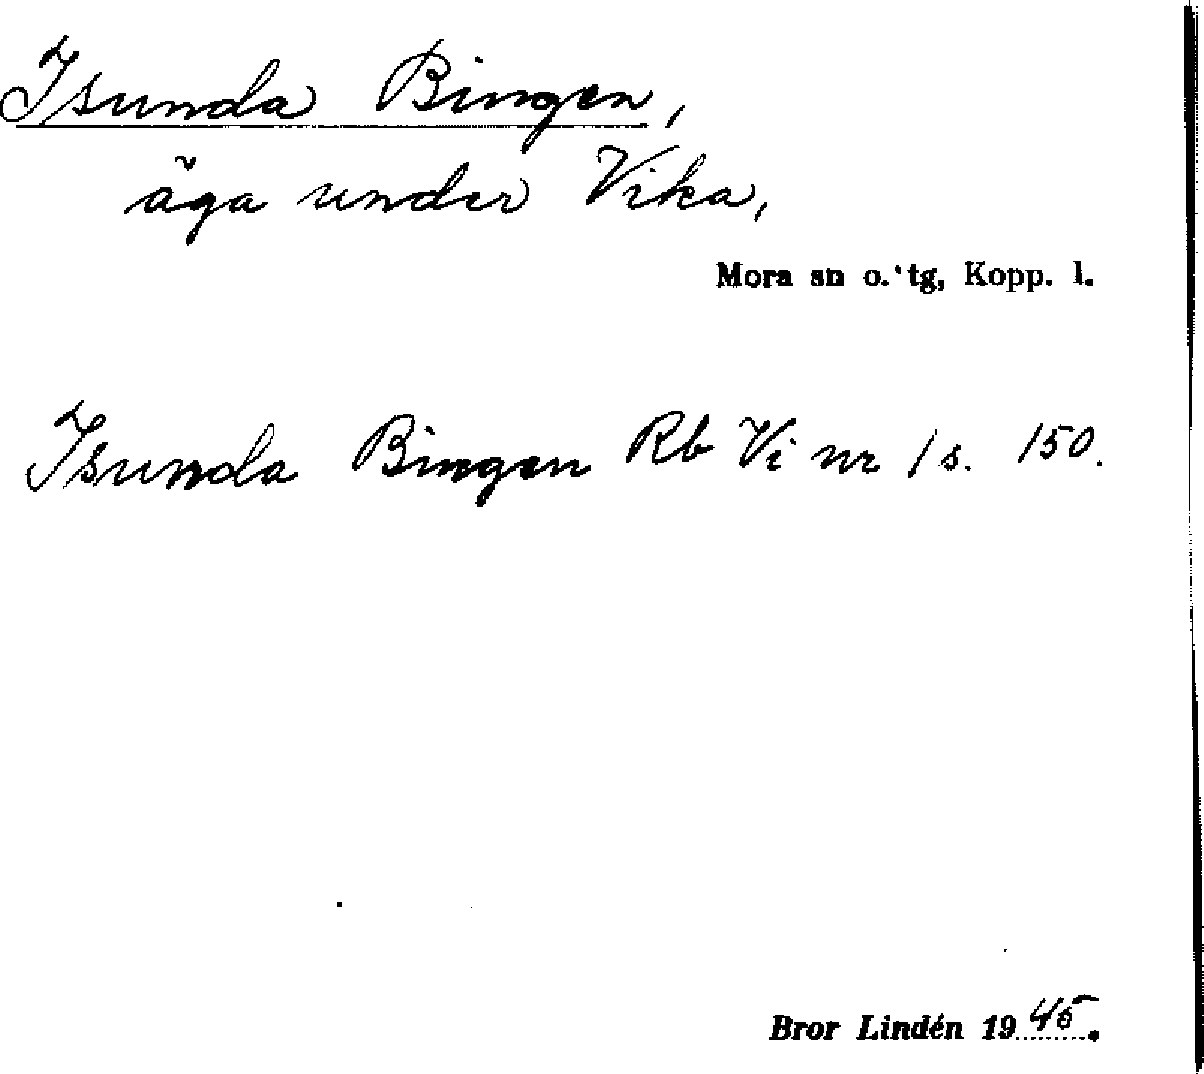 Isunda Bingen,
äga under Vika,
Mora sn o. tg, Kopp. l.
Isunda Bingen Rb Vi nr 1 s. 150.
Bror Lindén 1945.